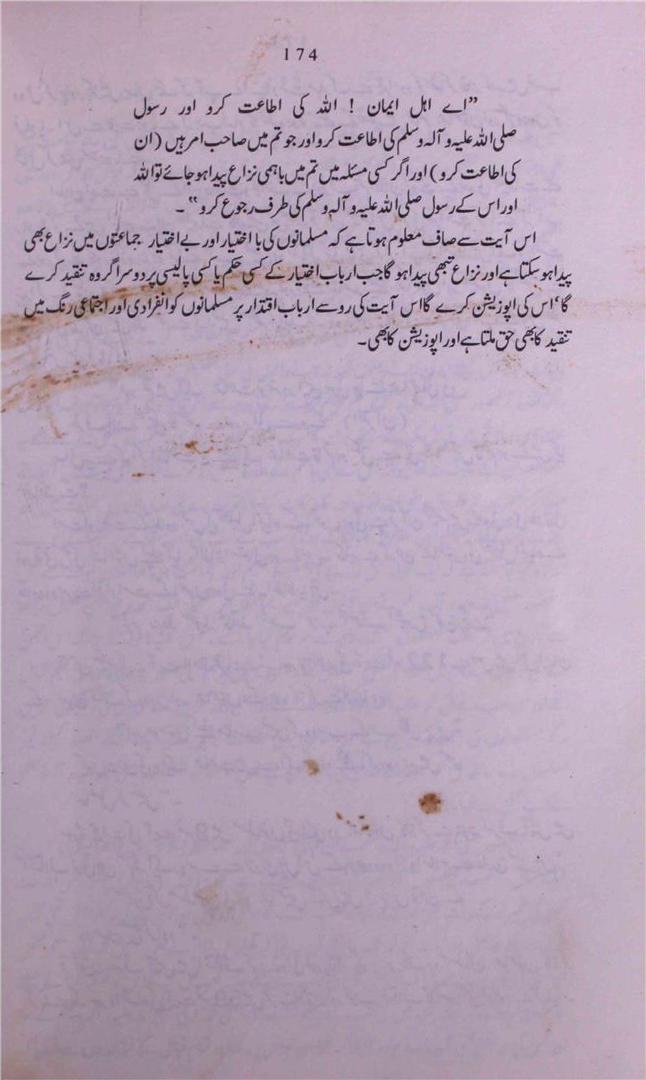 174
”اے اہل ایمان ! اللہ کی اطاعت کرو اور رسول
صلی اللہ علیہ و آلہ وسلم کی اطاعت کرو اور جو تم میں صاحب امر ہیں (ان
کی اطاعت کرو) اور اگر کسی مسئلہ میں تم میں باہمی نزاع پیدا ہو جائے تو اللہ
اور اس کے رسول صلی اللہ علیہ و آلہ وسلم کی طرف رجوع کرو“ ۔
اس آیت سے صاف معلوم ہوتا ہے کہ مسلمانوں کی با اختیار اور بے اختیار جماعتوں میں نزاع بھی
پیدا ہو سکتا ہے اور نزاع تبھی پیدا ہو گا جب ارباب اختیار کے کسی حکم یا کسی پالیسی پر دوسرا گروہ تنقید کرے
گا‘ اس کی اپوزیشن کرے گا اس آیت کی رو سے ارباب اقتدار پر مسلمانوں کو انفرادی اور اجتماعی رنگ میں
تنقید کا بھی حق ملتا ہے اور اپوزیشن کا بھی۔